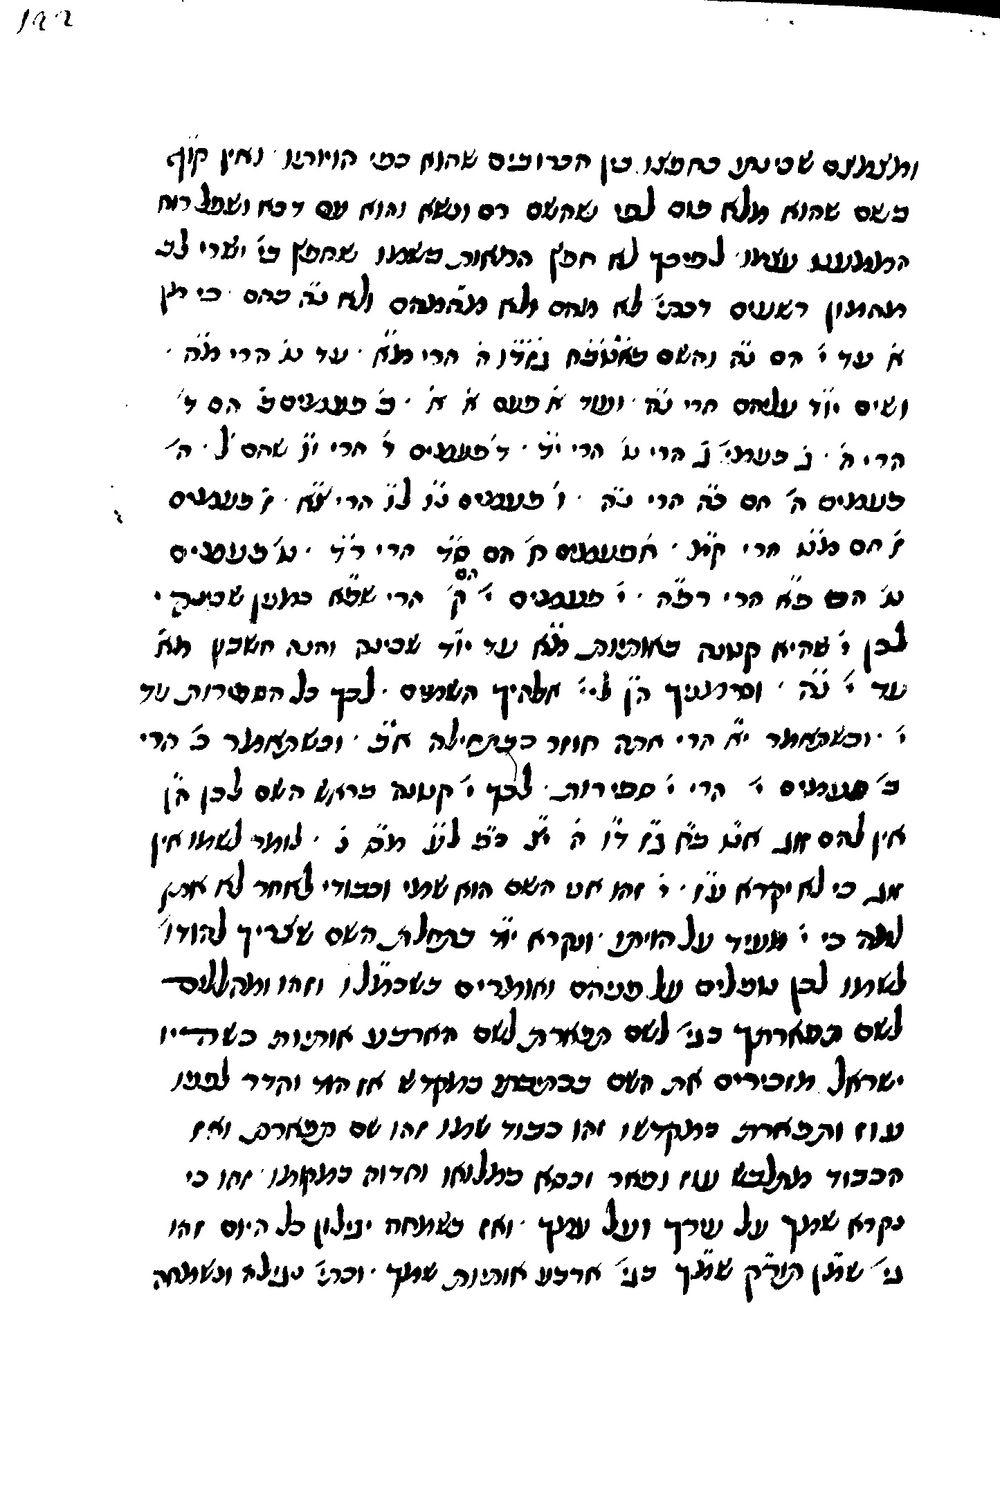 122
ומצמצם שכינתו כחפצו בין הכרובים שהוא כפי הויותיו · ואין קו״ף
בשם שהוא מלא פום לפי שהשם רם ונשא והוא עם דכא ושפל רוח
הממעט עצמו · לפיכך לא חפץ המאות בשמו שחפץ בי׳ ישרי לב
מהמון רשעים דכתי׳ לא מהם ולא מהמהם ולא נה בהם · כי מן
א׳ עד י׳ הם נ״ה והשם באטבח גזדו ה׳ הרי מ״א · עד ט׳ הרי מ״ה ·
ושים יו״ד עליהם הרי נ״ה · ועוד א׳ פעם א׳ א׳ · ב׳ פעמים ב׳ הם ד׳
הרי ה׳ · ג׳ פעמי׳ ג׳ הרי ט׳ הרי י״ד · ד׳ פעמים ד׳ הרי י״ו שהם ל׳ · ה׳
פעמים ה׳ הם כ״ה הרי נ״ה · ו׳ פעמים ו׳ ל״ו הרי צ״א · ז׳ פעמים
ז׳ הם מ״ט הרי ק״מ · ח׳ פעמים ח׳ הם ס״ד הרי ר״ד · ט׳ פעמים
ט׳ הם פ״א הרי רפ״ה · י׳ פעמים י׳ הם ק׳ הרי שפ״ה כמנין שכינה י
לכן י׳ שהיא קטנה באותיות מא׳ עד יו״ד שכינה והנה חשבון מא׳
עד י׳ נ״ה · וסימניך ה״ן לי״י אלהיך השמים · לכך כל הספירות עד
י׳ · וכשתאמר י״א הרי אתה חוזר כבתחילה א״ב · וכשתאמר כ׳ הרי
ב׳ פעמים י׳ הרי י׳ ספירות · לכך י׳ קטנה בראש השם לכן ה״ן
אין להם זוג א״ט ב״ח ג״ז ד״ו ה׳ י״צ כ״פ ל״ע מ״ס נ׳ · לומר לשמו אין
זוג כי לא יקרא ע״ז · י׳ זהו אני השם הוא שמי וכבודי לאחר לא אתן
למה כי י׳ מעיד על הויתו · ונקרא יו״ד בתחלת השם שצריך להודו׳
לשמו לכן נופלים על פניהם ואומרים בשכמ״לו וזהו ומהללים
לשם תפארתך בגי׳ לשם תפארת לשם הארבע אותיות כשהיו
ישראל מזכירים את השם ככתיבתו במקדש אז הוד והדר לפניו
עוז ותפארת במקדשו זהו כבוד שמו זהו שם תפארת ואז
הכבוד מתלבש עוז ופאר וכסא במלואו וחדוה במקומו · זהו כי
נקרא שמך על עירך ועל עמך · ואז בשמחה יגילון כל היום זהו
גי׳ שמ״ן תור״ק שמ״ך בגי׳ ארבע אותיות שמך · וכתי׳ נגילה ונשמחה